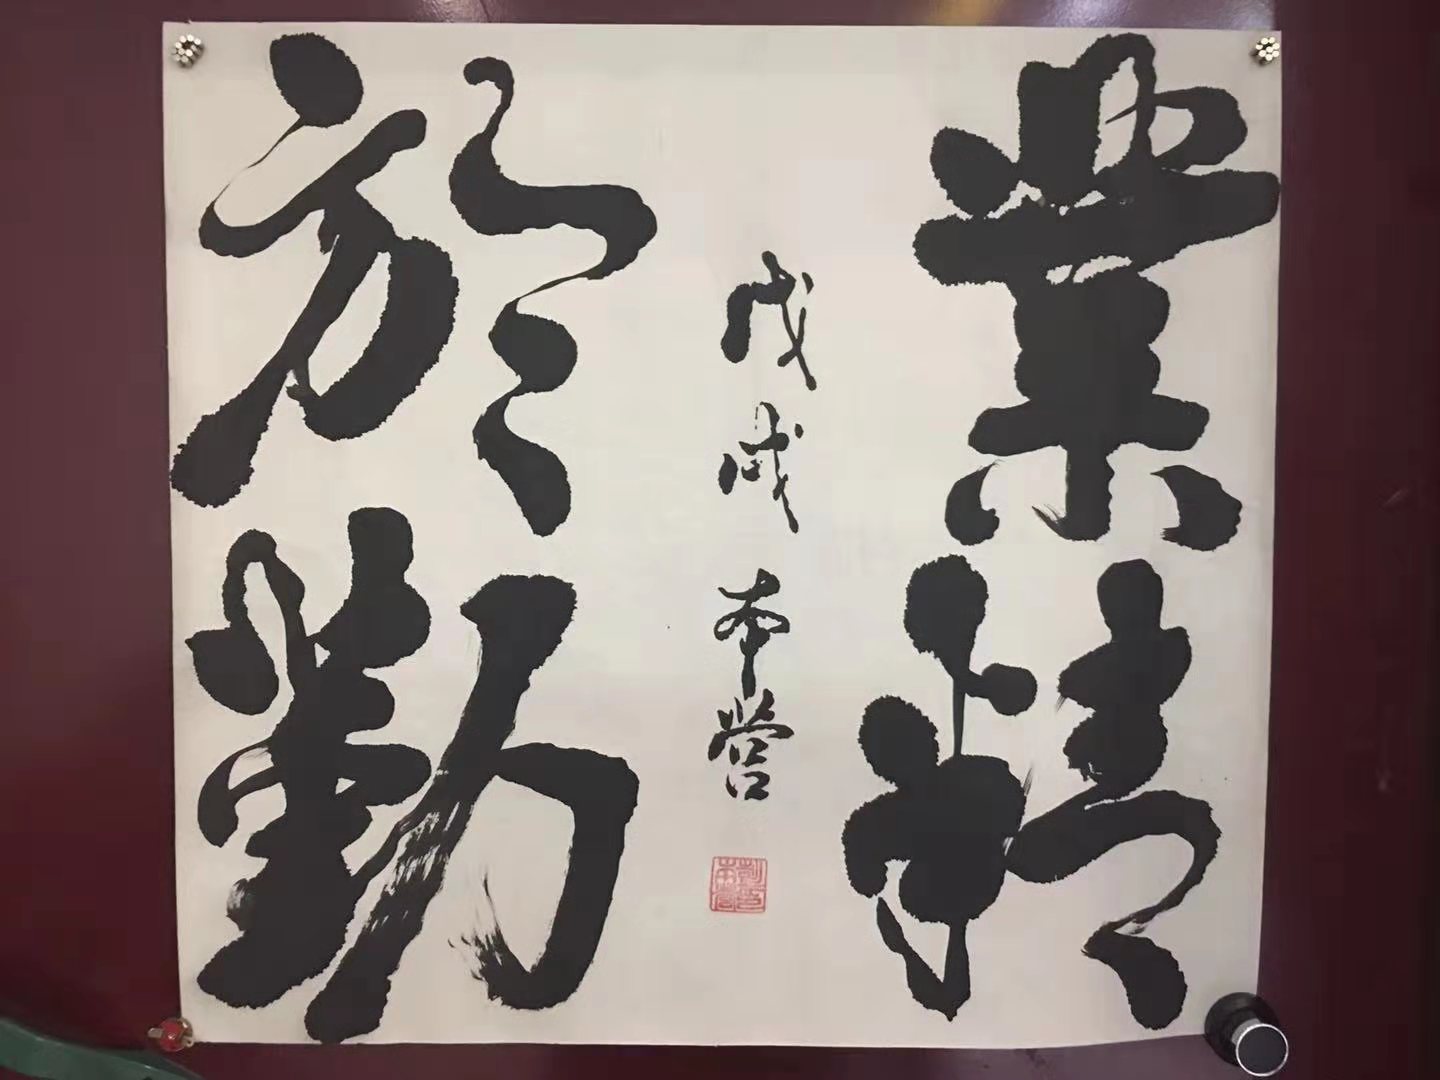 業精
於勤
戊戌 本營